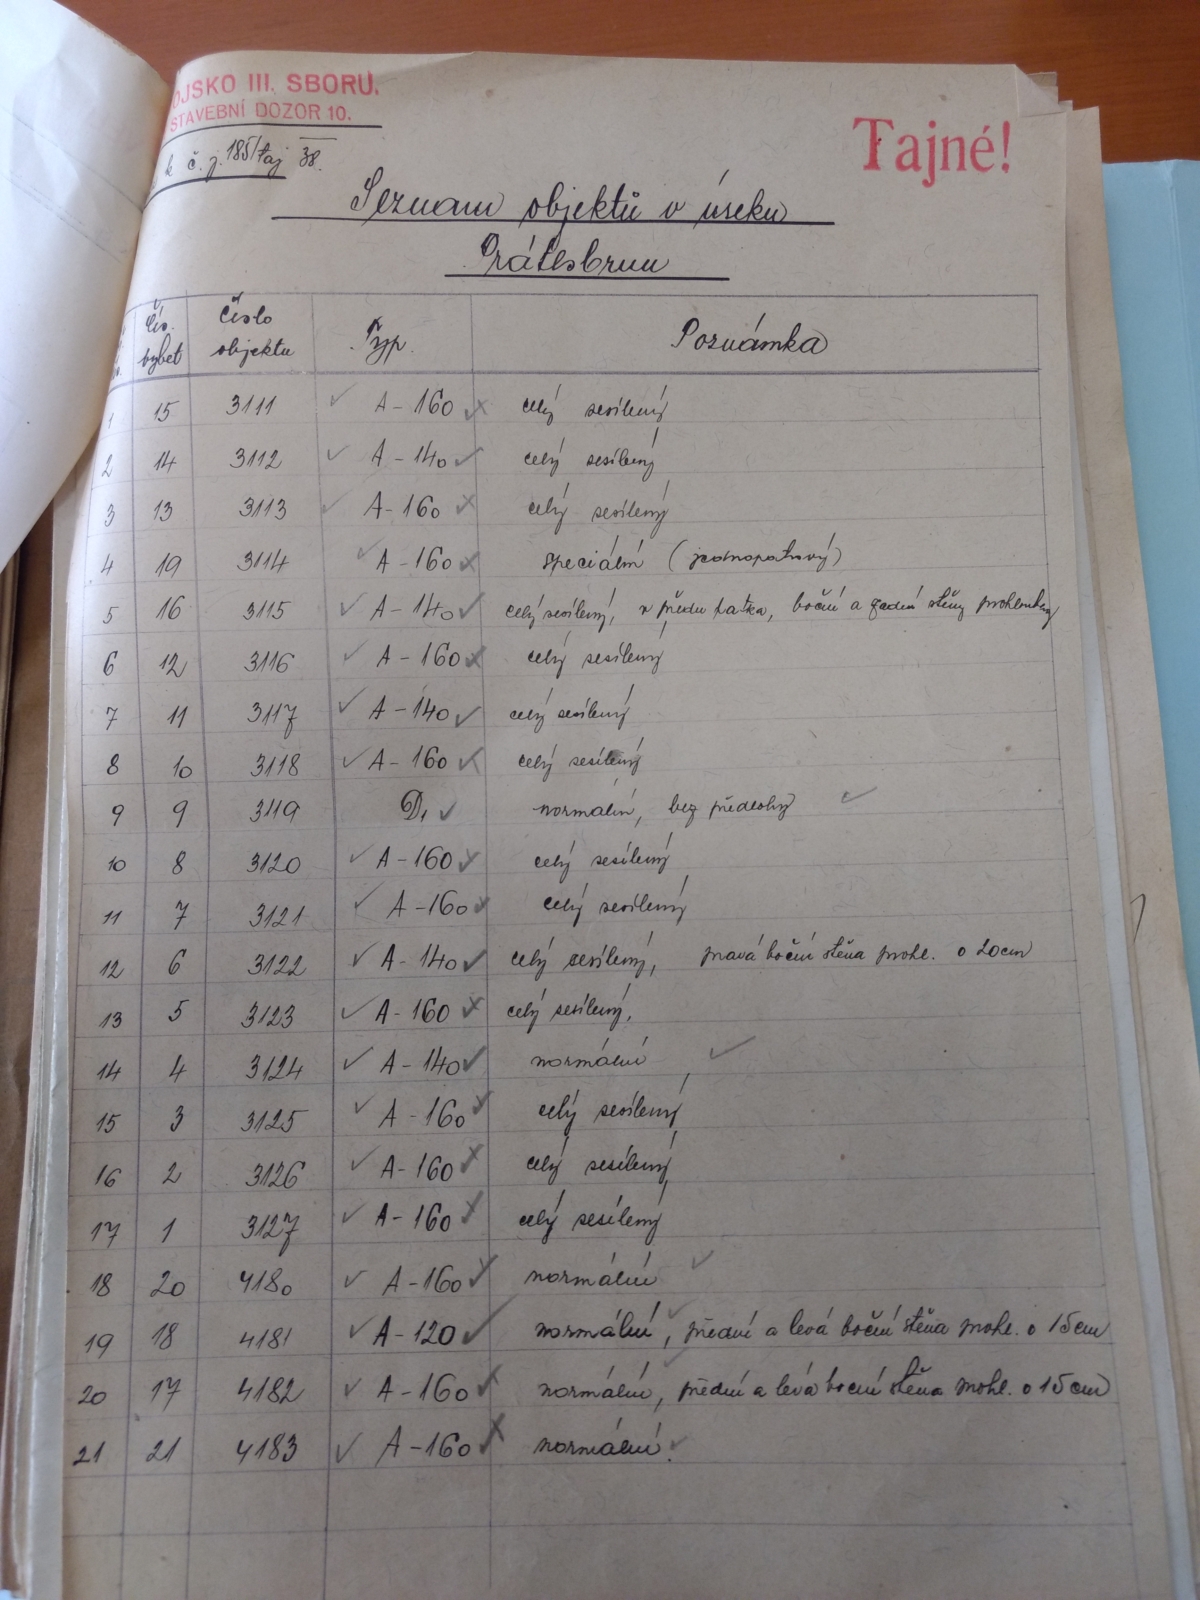 OJSKO III. SBORU.
STAVEBNÍ DOZOR 10.
k č. j. 185/taj 38.
Tajné!
Seznam objektů v úseku
Grátlsbrun
Čís. vybet
Číslo objektu
Typ.
Poznámka
1 15 3111 A-160 celý sesílený
2 14 3112 A-140 celý sesílený
3 13 3113 A-160 celý sesílený
4 19 3114 A-160 speciální (jednopatrový)
5 16 3115 A-140 celý sesílený, v předu patka, boční a zadní stěny prohloubeny
6 12 3116 A-160 celý sesílený
7 11 3117 A-140 celý sesílený
8 10 3118 A-160 celý sesílený
9 9 3119 D1 normální, bez předlohy
10 8 3120 A-160 celý sesílený
11 7 3121 A-160 celý sesílený
12 6 3122 A-140 celý sesílený, pravá boční stěna prohl. o 20cm
13 5 3123 A-160 celý sesílený,
14 4 3124 A-140 normální
15 3 3125 A-160 celý sesílený
16 2 3126 A-160 celý sesílený
17 1 3127 A-160 celý sesílený
18 20 4180 A-160 normální
19 18 4181 A-120 normální, přední a levá boční stěna prohl. o 15cm
20 17 4182 A-160 normální, přední a levá boční stěna prohl. o 15cm
21 21 4183 A-160 normální.